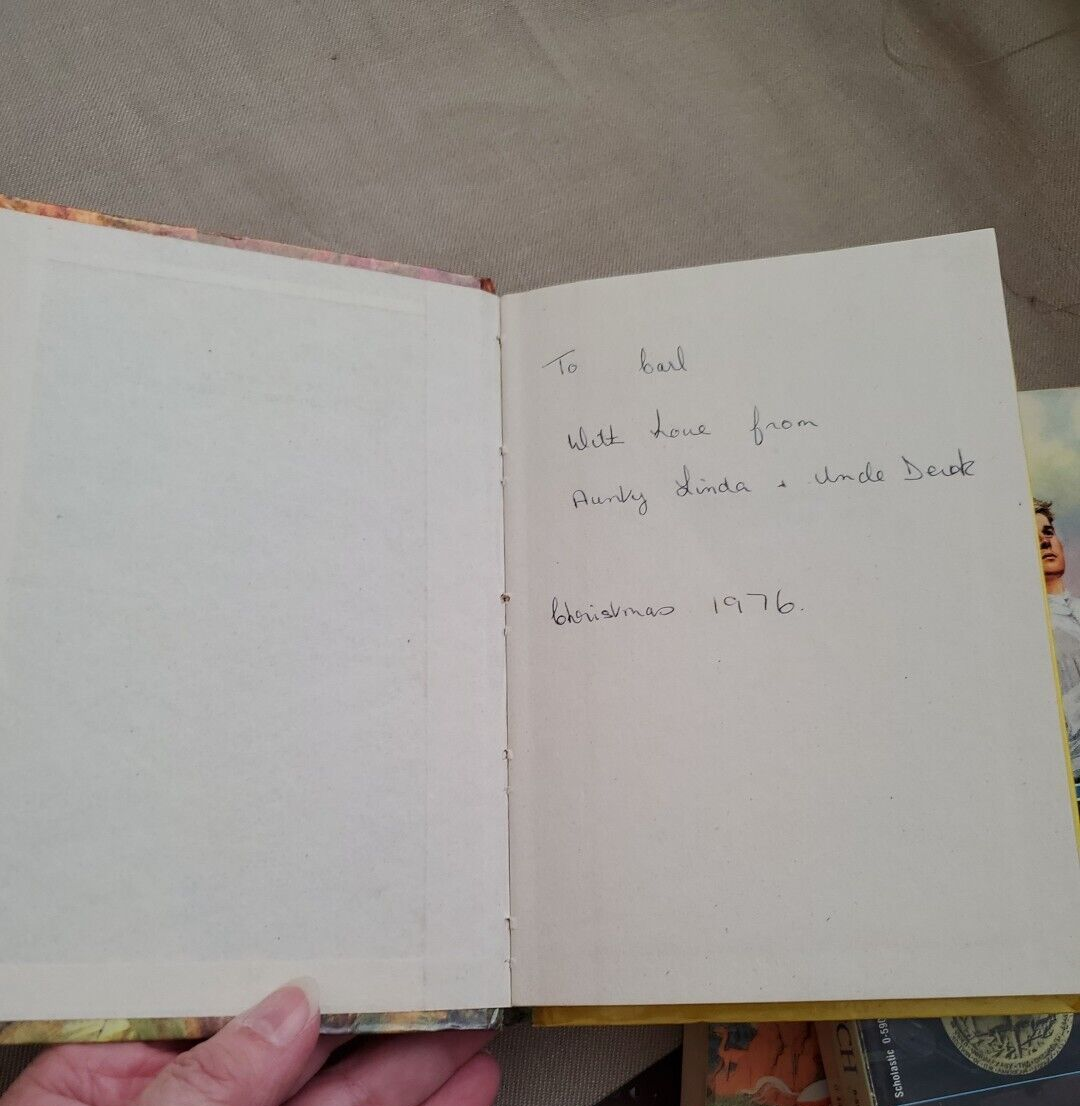 To Carl
With Love from
Aunty Linda + Uncle Derek
Christmas 1976.
CH
Scholastic 0-590